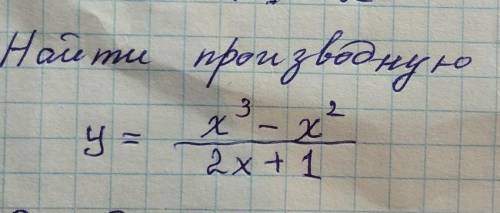 Найти производную
y = x³ - x² / 2x + 1